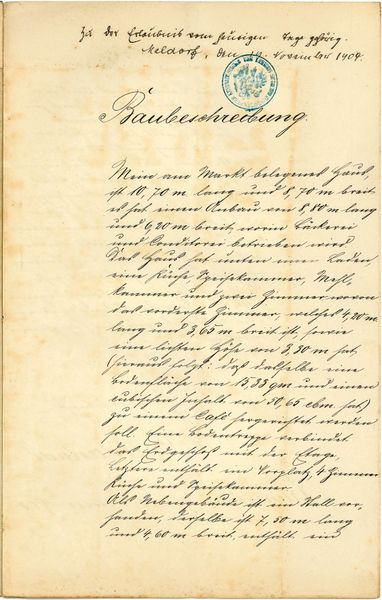 Zu der Erlaubnis vom heutigen Tage gehörig.
Meldorf, den 19. November 1904.
Baubeschreibung.
Mein am Markt belegenes Haus,
ist 10,70 m lang und 8,70 m breit
es hat einen Anbau von 8,80 m lang
und 6,20 m breit, worin Bäckerei
und Conditorei betrieben wird
Das Haus hat unten einen Laden,
eine Küche, Speisekammer, Mehl-
kammer und zwei Zimmer wovon
das vorderste Zimmer, welches 4,20 m
lang und 3,65 m breit ist, sowie
eine lichten Höhe von 3,30 m hat
(hieraus folgt: das dasselbe eine
Bodenfläche von 15,33 qm und einen
cubischen Inhalt von 50,65 cbm hat)
zu einem Café hergerichtet werden
soll. Eine Bodentreppe verbindet
das Erdgeschoß mit der Etage,
Letztere enthält ein Vorplatz, 4 Zimmer
Küche und Speisekammer
Als Nebengebäude ist ein Stall vor-
handen, derselbe ist 7,50 m lang
und 4,60 m breit, enthält ein